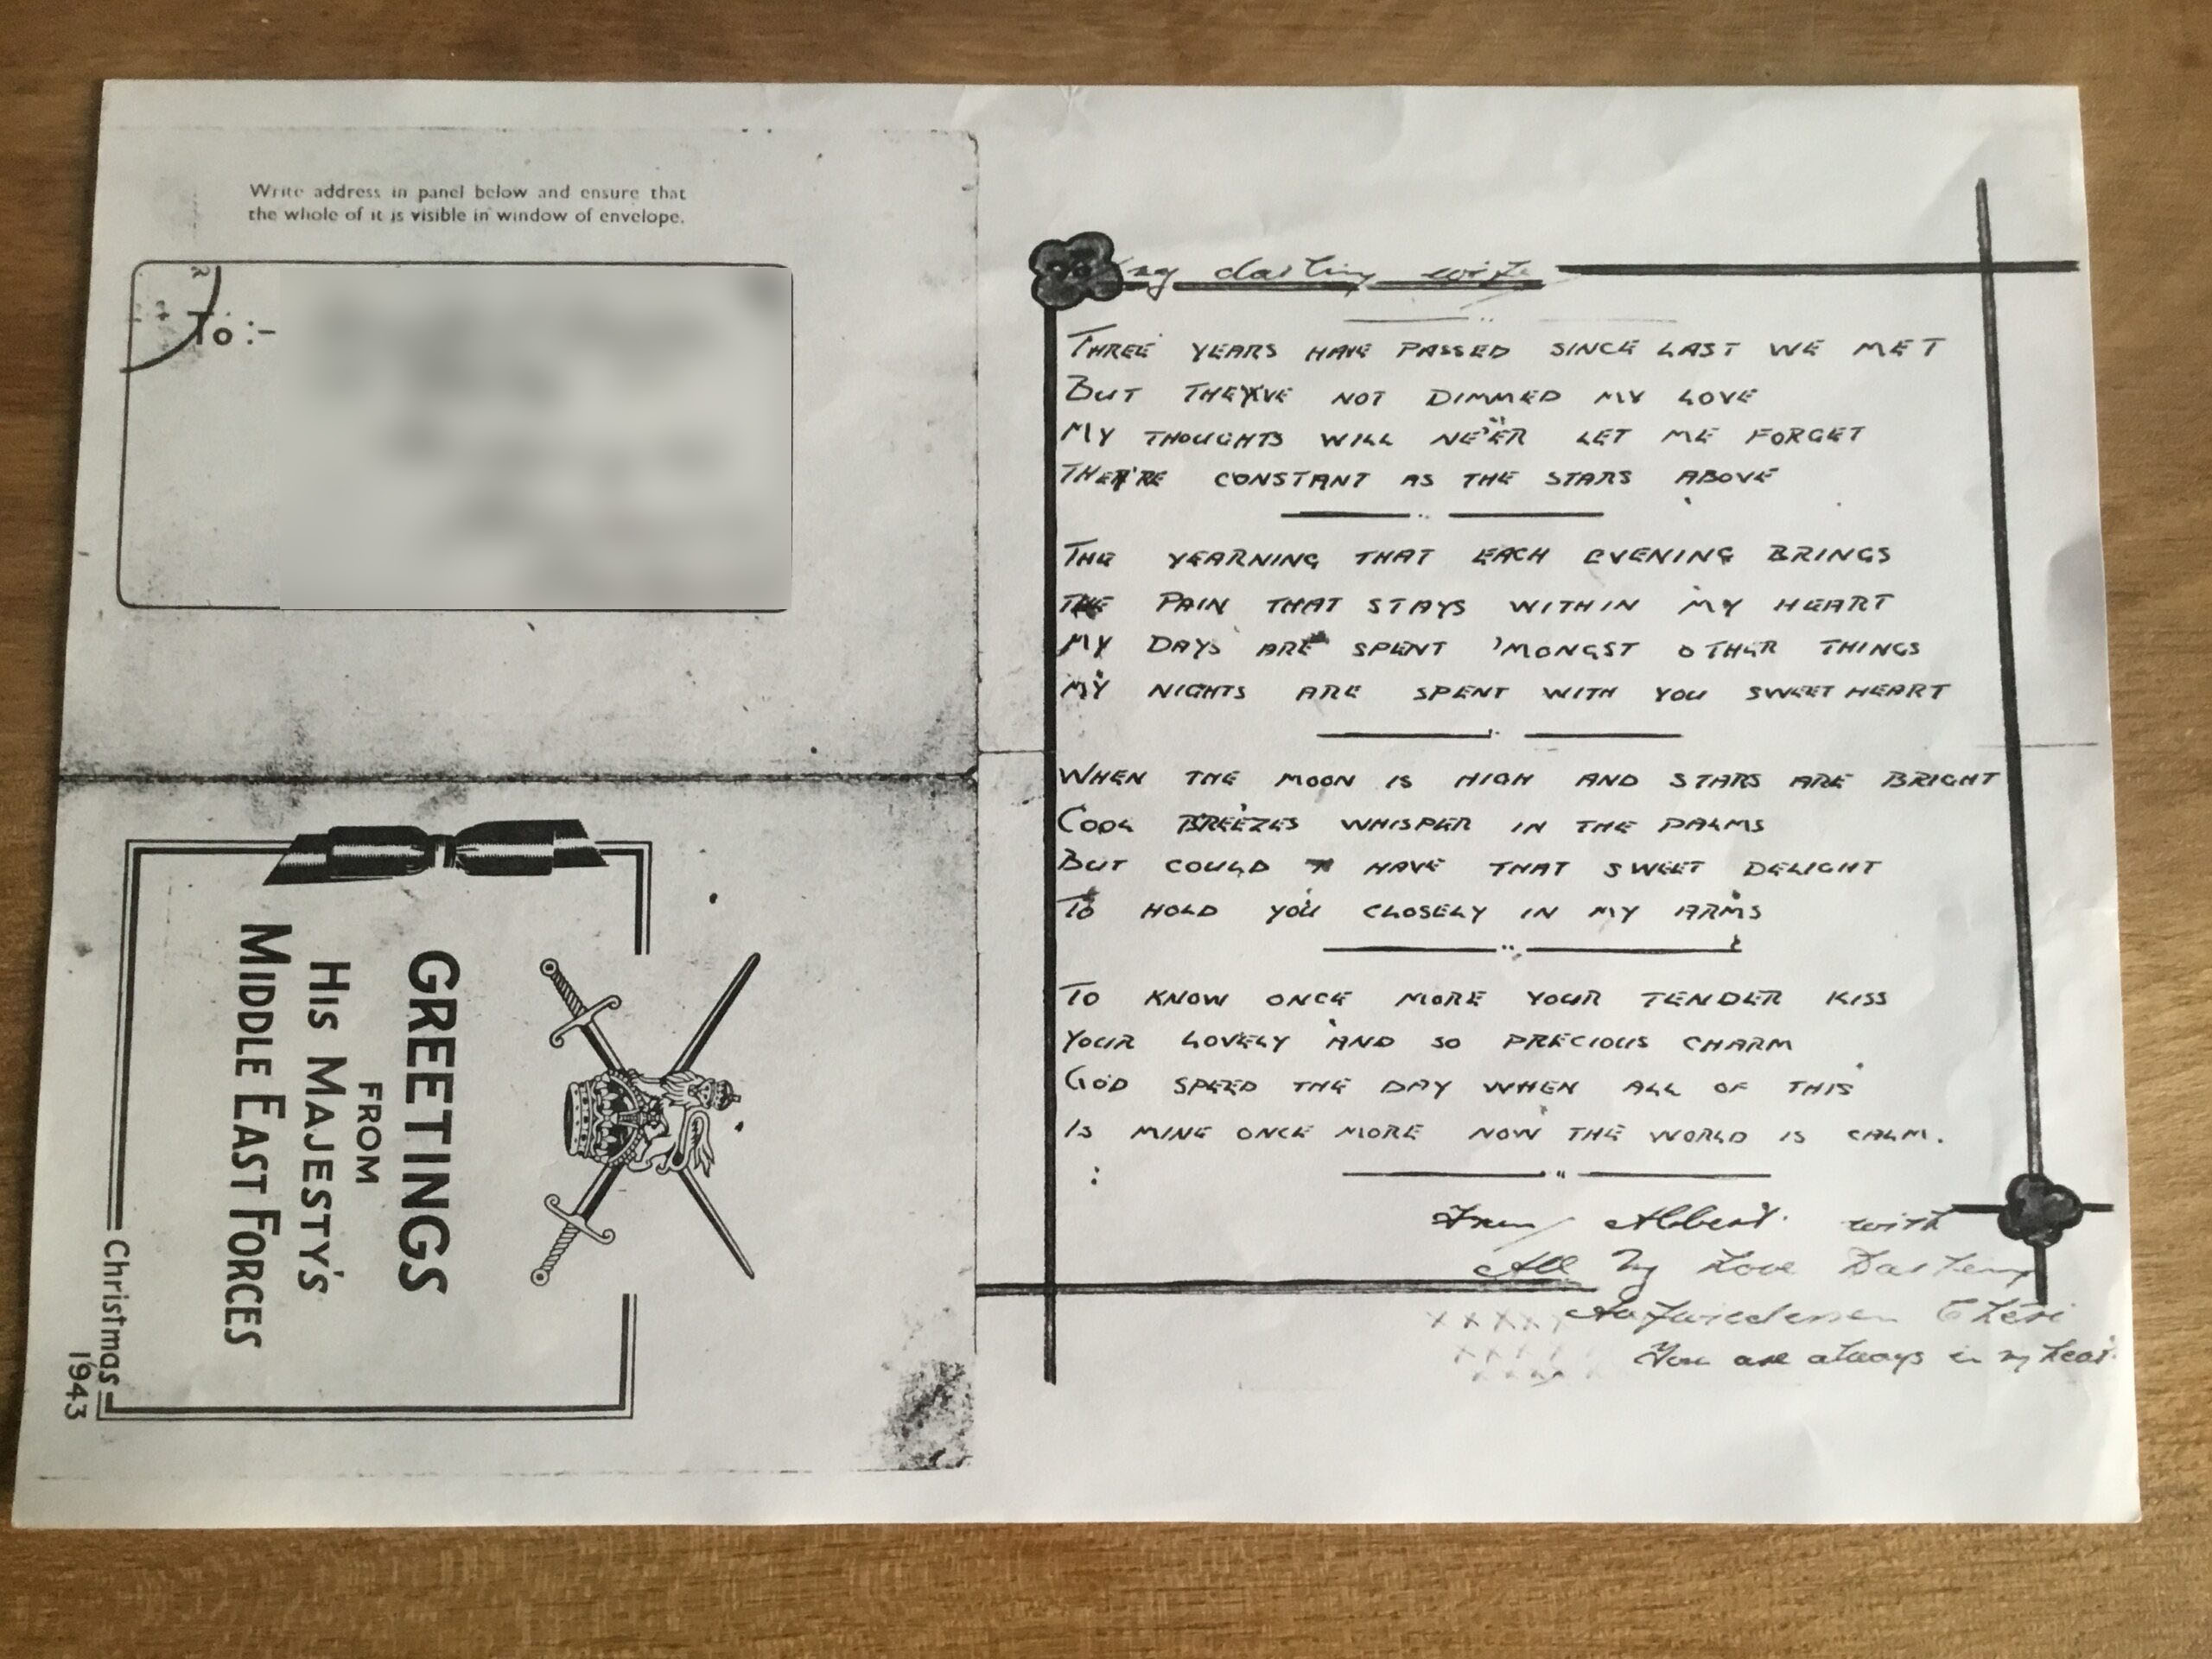 Write address in panel below and ensure that
the whole of it is visible in window of envelope.
To :-
GREETINGS
FROM
HIS MAJESTY'S
MIDDLE EAST FORCES
Christmas
1943
To my darling wife
THREE YEARS HAVE PASSED SINCE LAST WE MET
BUT THEY'VE NOT DIMMED MY LOVE
MY THOUGHTS WILL NE'ER LET ME FORGET
THEY'RE CONSTANT AS THE STARS ABOVE
THE YEARNING THAT EACH EVENING BRINGS
THE PAIN THAT STAYS WITHIN MY HEART
MY DAYS ARE SPENT 'MONGST OTHER THINGS
MY NIGHTS ARE SPENT WITH YOU SWEETHEART
WHEN THE MOON IS HIGH AND STARS ARE BRIGHT
COOL BREEZES WHISPER IN THE PALMS
BUT COULD I HAVE THAT SWEET DELIGHT
TO HOLD YOU CLOSELY IN MY ARMS
TO KNOW ONCE MORE YOUR TENDER KISS
YOUR LOVELY AND SO PRECIOUS CHARM
GOD SPEED THE DAY WHEN ALL OF THIS
IS MINE ONCE MORE NOW THE WORLD IS CALM.
From Albert. with
All My Love Darling
Aufwiedersen Cheri
You are always in my heart